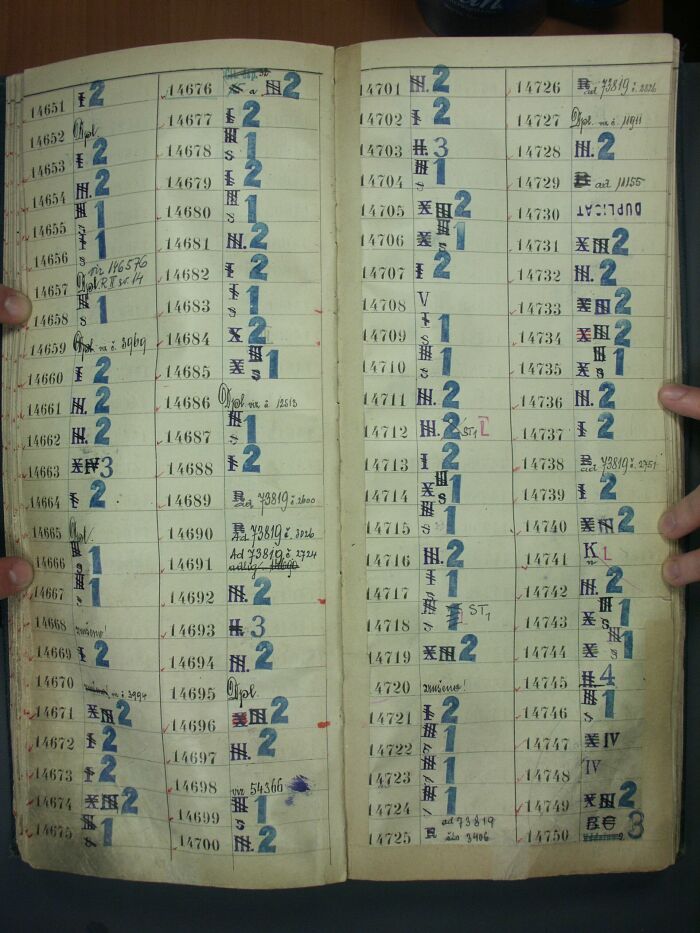 14651 I 2
14652 Dpl.
14653 I 2
14654 III. 2
14655 III s 1
14656 I s 1
14657 viz 146576
Dpl. R II sv. 14
14658 III s 1
14659 Dpl. viz č. 3969
14660 I 2
14661 III. 2
14662 III. 2
14663 X IV 3
14664 I 2
14665 Dpl.
14666 III s 1
14667 III s 1
14668 zrušeno!
14669 I 2
14670 viz č. 3994
14671 X III 2
14672 I 2
14673 I 2
14674 X III 2
14675 III s 1
14676 a III 2
14677 I 2
14678 III s 1
14679 I 2
14680 III s 1
14681 III. 2
14682 I 2
14683 I s 1
14684 X 2
14685 X III s 1
14686 Dpl. viz č. 12513
14687 III s 1
14688 I 2
14689 R ad 73819 č. 2600
14690 R Ad 73819 č. 3026
14691 Ad 73819 č. 2724
14692 III. 2
14693 II. 3
14694 III. 2
14695 Dpl.
14696 X III 2
14697 III. 2
14698 viz 54366
14699 III s 1
14700 III. 2
14701 III. 2
14702 I 2
14703 II. 3
14704 III s 1
14705 X III 2
14706 X III s 1
14707 I 2
14708 V
14709 I s 1
14710 III s 1
14711 III. 2
14712 III. 2 ST1
14713 I 2
14714 X III s 1
14715 III s 1
14716 III. 2
14717 I s 1
14718 III s ST1
14719 X III 2
4720 zrušeno!
14721 I 2
14722 III s 1
14723 III s 1
14724 III s 1
14725 R ad 73819
čís 3406
14726 R ad 73819 č. 2826
14727 Dpl. viz č. 11911
14728 III. 2
14729 R ad 11155
14730 DUPLICAT
14731 X III 2
14732 III. 2
14733 X III 2
14734 X III 2
14735 X III s 1
14736 III. 2
14737 I 2
14738 R ad 73819 č. 2751
14739 I 2
14740 X III 2
14741 K
14742 III. 2
14743 X III s 1
14744 X III s 1
14745 II. 4
14746 III s 1
14747 X IV
14748 IV
14749 X III 2
14750 3